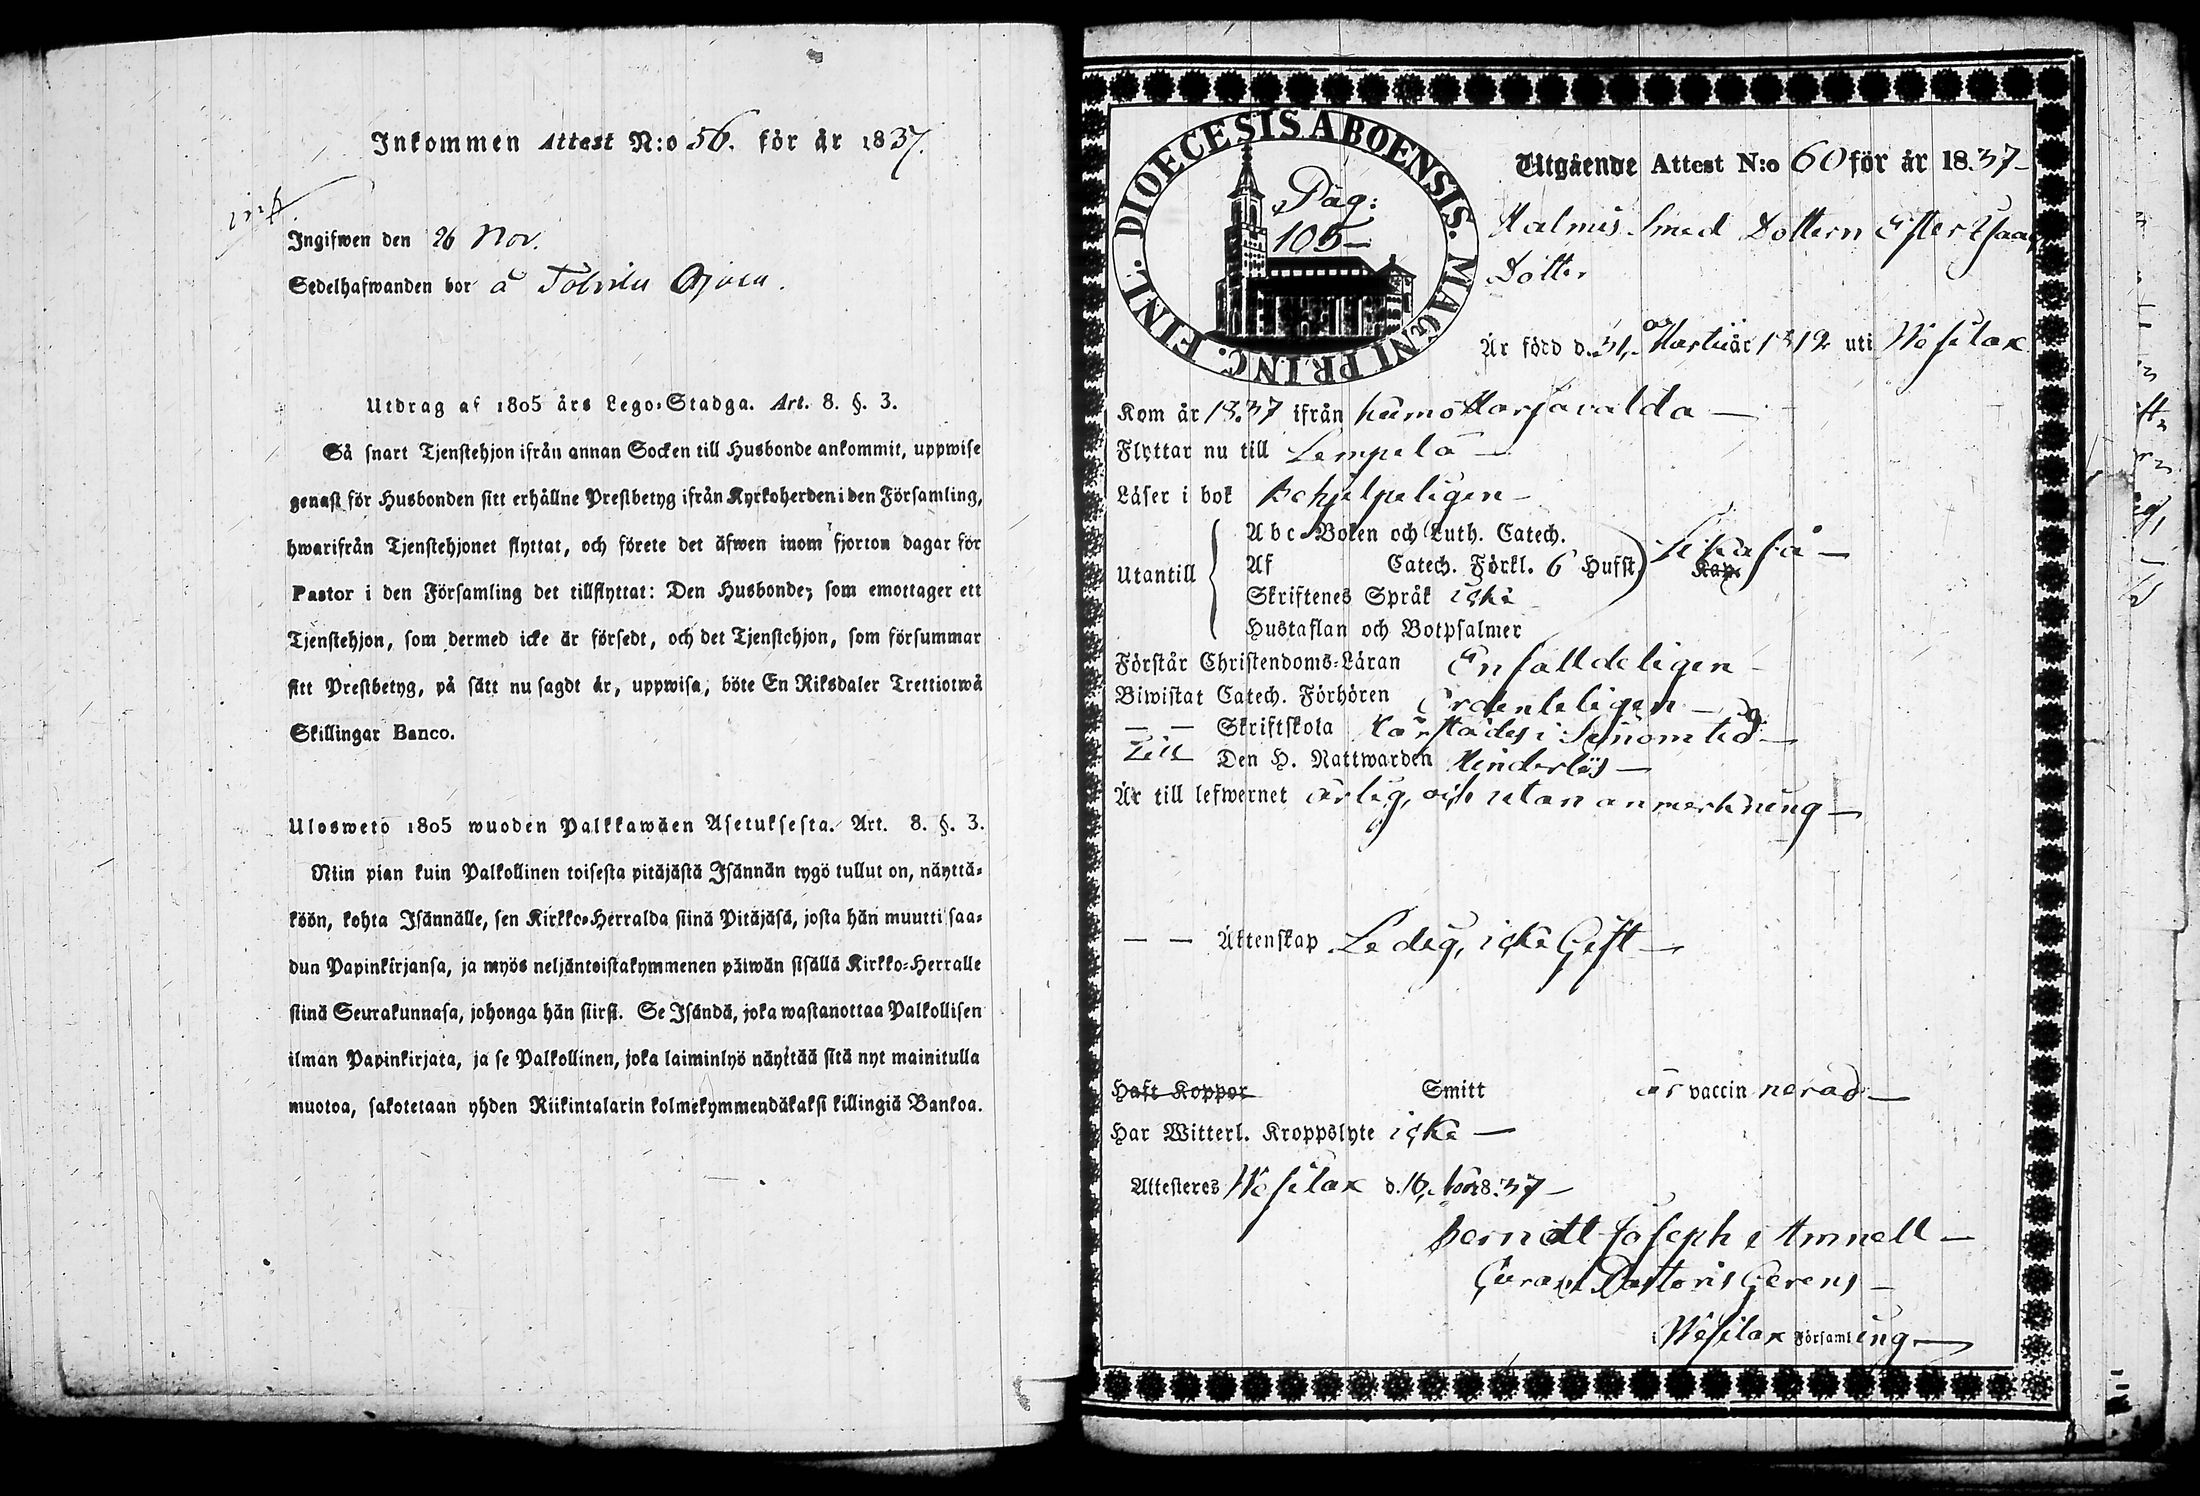 Inkommen Attest N:o 56. för år 1837.
Ingifwen den 26 Nov.
Sedelhafwanden bor å
Utdrag af 1805 års Lego-Stadga. Art. 8. §. 3.
Så snart Tjenstehjon ifrån annan Socken till Husbonde ankommit, uppwise
genast för Husbonden sitt erhållne Prestbetyg ifrån Kyrkoherden i den Församling,
hwarifrån Tjenstehjonet flyttat, och förete det äfwen inom fjorton dagar för
Pastor i den Församling det tillflyttat: Den Husbonde, som emottager ett
Tjenstehjon, som dermed icke är försedt, och det Tjenstehjon, som försummar
sitt Prestbetyg, på sätt nu sagdt är, uppwisa, böte En Riksdaler Trettiotwå
Skillingar Banco.
Ulosweto 1805 wuoden Palkkawäen Asetuksesta. Art. 8. §. 3.
Niin pian kuin Palkollinen toisesta pitäjästä Isännän tygö tullut on, näyttä-
köön, kohta Isännälle, sen Kirkko-Herralda siinä Pitäjäsä, josta hän muutti saa-
dun Papinkirjansa, ja myös neljäntoistakymmenen päiwän sisällä Kirkko-Herralle
siinä Seurakunnasa, johonga hän siirsi. Se Isändä, joka wastanottaa Palkollisen
ilman Papinkirjata, ja se Palkollinen, joka laiminlyö näyttää sitä nyt mainitulla
muotoa, sakotetaan yhden Riikintalarin kolmekymmendäkaksi killingiä Bankoa.
DIOECESIS ABOENSIS. MAGNI PRINC. FINL.
Pag:
105
Utgående Attest N:o 60 för år 1837
Malmis Smed Dottern Ester Isaacs
Dotter
Är född d. 31, Martii år 1812 uti Wesilax
Kom år 1837 ifrån humo Harjavalda
Flyttar nu till Lempelä
Läser i bok behjelpeligen
Utantill
Abc-Boken och Luth. Catech.
Af Catech. Förkl. 6 Hufst Kap. likaså
Skriftenes Språk icke
Hustaflan och Botpsalmer
Förstår Christendoms-Läran Enfalldeligen
Biwistat Catech. Förhören Ordenteligen
— — Skriftskola härstädes i sinom tid
Till Den H. Nattwarden Hinderlös
Är till lefwernet ärlig, och utan anmerkning
— — Äktenskap Ledig, icke Gift
Haft Koppor Smitt är vaccinerad
Har Witterl. Kroppslyte icke
Attesteres Wesilax d. 16, Nov 1837
Berndt Joseph Amnell
Curam Pastoris Gerens
i Wesilax Församling